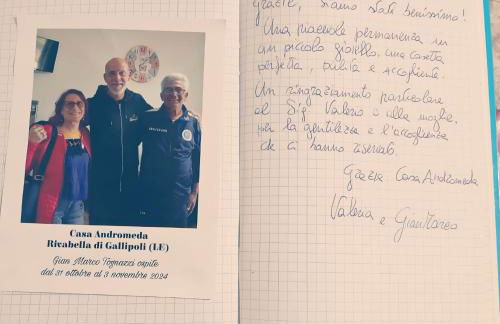 Casa Andromeda
Ricabella di Gallipoli (LE)
Gian Marco Tognazzi ospite
dal 31 ottobre al 3 novembre 2024
grazie, siamo stati benissimo!
Una piacevole permanenza in
un piccolo gioiello, una casetta
perfetta, pulita e accogliente.
Un ringraziamento particolare
al Sig. Valerio e alla moglie,
per la gentilezza e l'accoglienza
che ci hanno riservato.
Grazie Casa Andromeda
Valeria e GianMarco